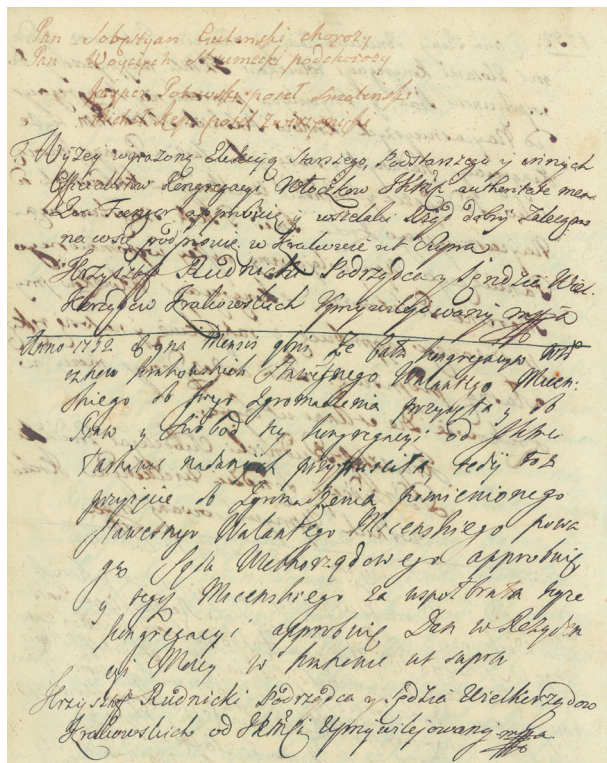 Pan Sobestyan Guteński choroży
Pan Woyciech Słumecki podchoroży
Kacper Potowski poseł
Michał poseł Zwierzyniec
Wyżey wyrażoną Elekcyą Starszego, Podstarszego y innych
Officialistow Kongregacyi Włoczkow authentate
approbuię y wszelki Rząd dobry Zalecywszy
na wsz podpisuię w Krakowie ut supra
Krzysztof Rudnicki Podrządca y Sędzia Wiel:
korządow Krakowskich Uprzywilejowany mppa
Anno 1792 dnia Mensis Ze Cała Kongregacya Wło
czkow Krakowskich Sławetnego Walantego Micen:
skiego do swego Zgromadzenia przyięła y do
Praw y Swobod tey Kongregacyi od
nadanych przypusciła, tedy toż
przyięcie do Zgromadzenia pomienionego
Sławetnego Walantego Micenskiego powa
gą Sądu Wielkorządowego approbuię
y tegoż Micenskiego za wspołbrata tyże
Kongregacyi approbuię Dan w Rezyden
cyi Moiey w Krakowie ut supra
Krzysztof Rudnicki Podrządca y Sędzia Wielkorządow
Krakowskich od JKMci Uprzywilejowany mppa